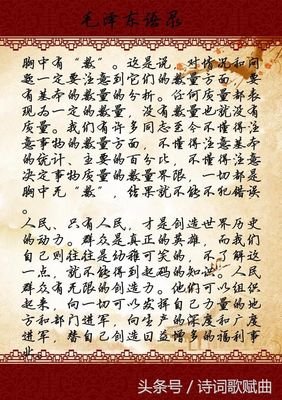 毛泽东语录
胸中有“数”。这是说，对情况和问
题一定要注意到它们的数量方面，要
有基本的数量的分析。任何质量都表
现为一定的数量，没有数量也就没有
质量。我们有许多同志至今不懂得注
意事物的数量方面，不懂得注意基本
的统计、主要的百分比，不懂得注意
决定事物质量的数量界限，一切都是
胸中无“数”，结果就不能不犯错误
。
人民、只有人民，才是创造世界历史
的动力。群众是真正的英雄，而我们
自己则往往是幼稚可笑的，不了解这
一点，就不能得到起码的知识。人民
群众有无限的创造力。他们可以组织
起来，向一切可以发挥自己力量的地
方和部门进军，向生产的深度和广度
进军，替自己创造日益增多的福利事
业。
头条号/诗词歌赋曲